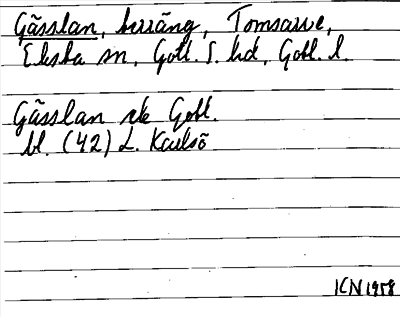 Gässlan, beräng, Tomsarve,
Eksta sn, Gotl. S. hd, Gotl. l.
Gässlan rk Gotl.
bl. (42) L. Karlsö
ICN 1958